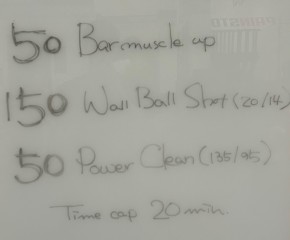 50 Bar muscle up
150 Wall Ball Shot (20/14)
50 Power Clean (135/95)
Time cap 20 min